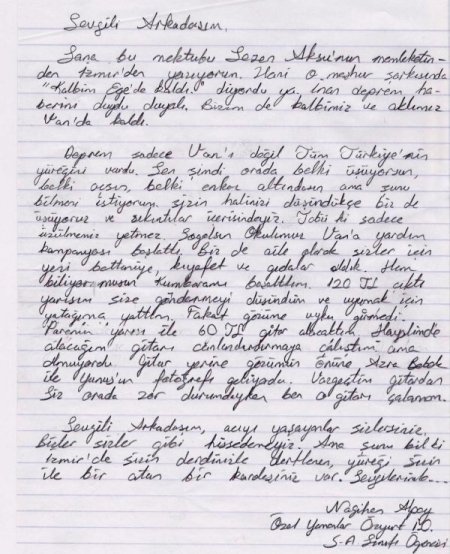 Sevgili Arkadaşım,
Sana bu mektubu Sezen Aksu'nun memleketin-
den İzmir'den yazıyorum. Hani o meşhur şarkısında
"Kalbim Ege'de kaldı." diyordu ya, inan deprem ha-
berini duydu duyalı. Bizim de kalbimiz ve aklımız
Van'da kaldı.
Deprem sadece Van'ı değil Tüm Türkiye'nin
yüreğini vurdu. Sen şimdi orada belki üşüyorsun,
belki açsın, belki enkaz altındasın ama şunu
bilmeni istiyorum sizin halinizi düşündükçe biz de
üşüyoruz ve sıkıntılar içerisindeyiz. Tabii ki sadece
üzülmemiz yetmez. Sağolsun Okulumuz Van'a yardım
kampanyası başlattı. Biz de aile olarak sizler için
yeni battaniye, kıyafet ve gıdalar aldık. Hem
biliyor musun? Kumbaramı boşalttım. 120 TL çıktı
yarısını size göndermeyi düşündüm ve uyumak için
yatağıma yattım. Fakat gözüme uyku girmedi.
Paranın yarısı ile 60 TL gitar alacaktım. Hayalimde
alacağım gitarı canlandırmaya çalıştım ama
olmuyordu. Gitar yerine gözümün önüne Azra Bebek
ile Yunus'un fotoğrafı geliyordu. Vazgeçtim gitardan
Siz orada zor durumdayken ben o gitarı çalamam.
Sevgili Arkadaşım, acıyı yaşayanlar sizlersiniz.
Bizler sizler gibi hissedemeyiz. Ama şunu bil ki
İzmir'de sizin derdinizle dertlenen, yüreği sizin
ile bir atan bir kardeşiniz var. Sevgilerimle...
Nagihan Alpay
Özel Yamanlar Özyurt İ.O.
5-A Sınıfı Öğrencisi